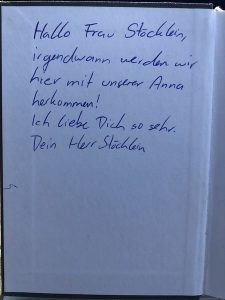 Hallo Frau Stöcklein,
irgendwann werden wir
hier mit unserer Anna
herkommen!
Ich liebe Dich so sehr.
Dein Herr Stöcklein